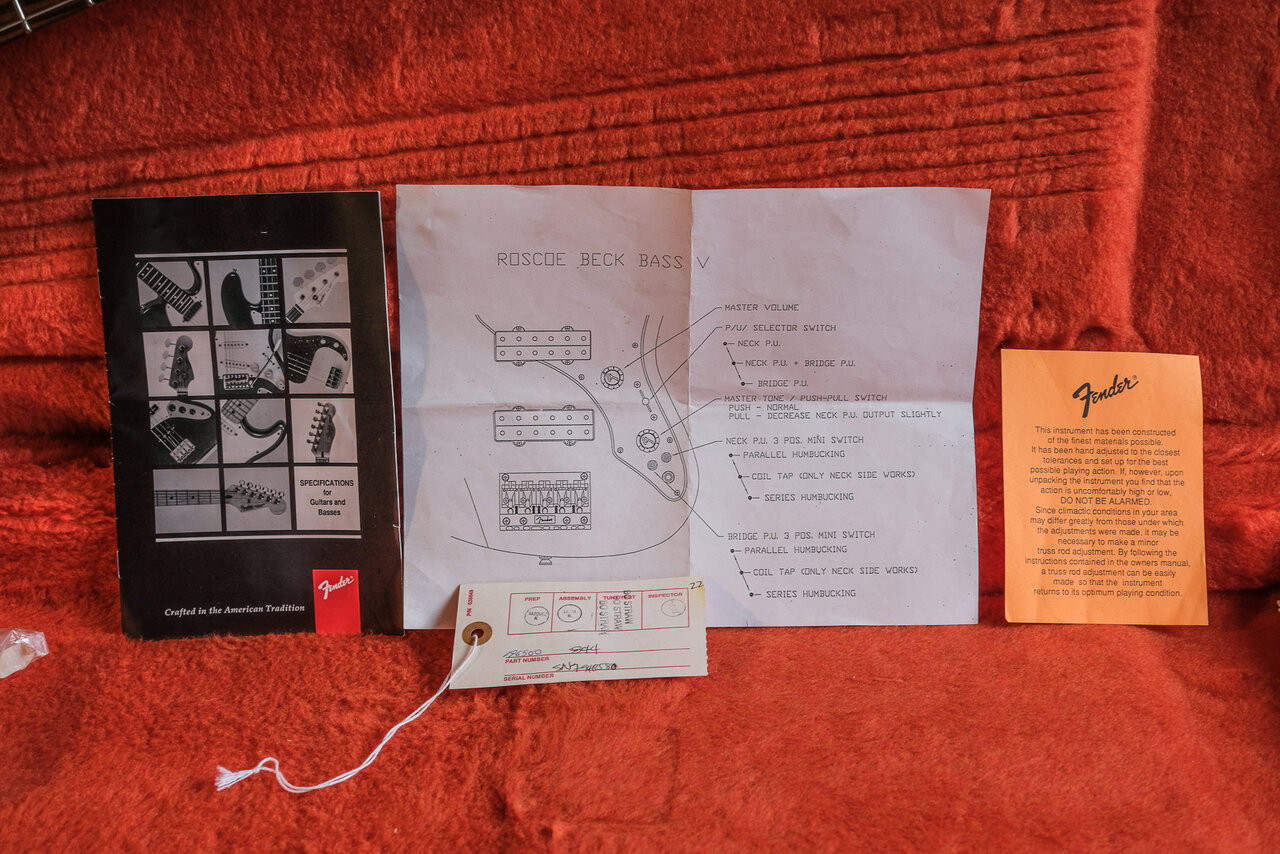 SPECIFICATIONS
for
Guitars and
Basses
Fender
Crafted in the American Tradition
ROSCOE BECK BASS V
MASTER VOLUME
P/U/ SELECTOR SWITCH
NECK P.U.
NECK P.U. + BRIDGE P.U.
BRIDGE P.U.
MASTER TONE / PUSH-PULL SWITCH
PUSH - NORMAL
PULL - DECREASE NECK P.U. OUTPUT SLIGHTLY
NECK P.U. 3 POS. MINI SWITCH
PARALLEL HUMBUCKING
COIL TAP (ONLY NECK SIDE WORKS)
SERIES HUMBUCKING
BRIDGE P.U. 3 POS. MINI SWITCH
PARALLEL HUMBUCKING
COIL TAP (ONLY NECK SIDE WORKS)
SERIES HUMBUCKING
Fender
22
PREP ASSEMBLY TUNE/TEST INSPECTOR
BO STRAW
BO STRAW
844
PART NUMBER
SERIAL NUMBER
Fender®
This instrument has been constructed
of the finest materials possible.
It has been hand adjusted to the closest
tolerances and set up for the best
possible playing action. If, however, upon
unpacking the instrument you find that the
action is uncomfortably high or low,
DO NOT BE ALARMED.
Since climactic conditions in your area
may differ greatly from those under which
the adjustments were made, it may be
necessary to make a minor
truss rod adjustment. By following the
instructions contained in the owners manual,
a truss rod adjustment can be easily
made so that the instrument
returns to its optimum playing condition.